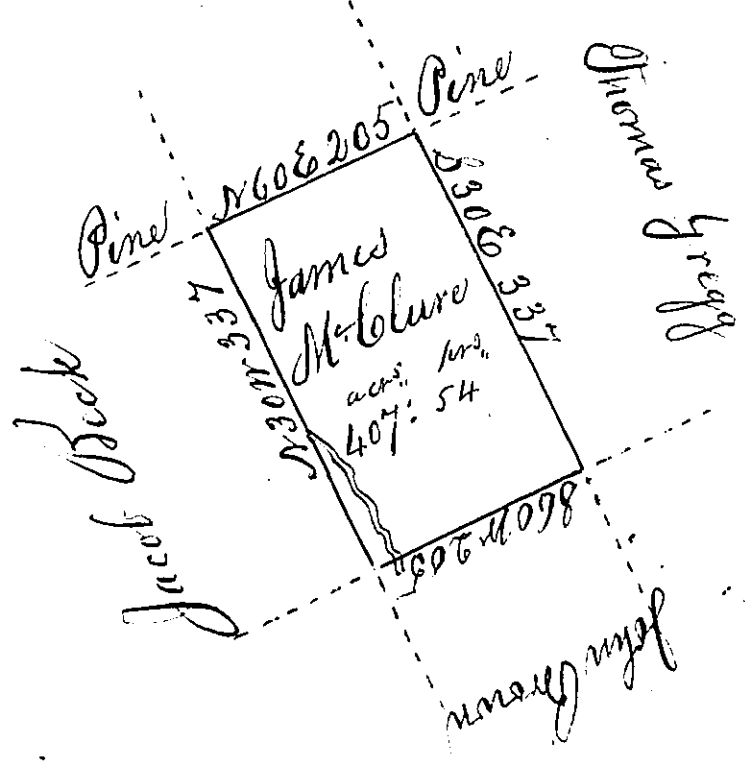 Pine
N60E 205
Pine
Thomas Gregg
S30E 337
James
McClure
acrs,, prs,,
407: 54
N30W 337
Jacob Beck
S60W 205
John Brown